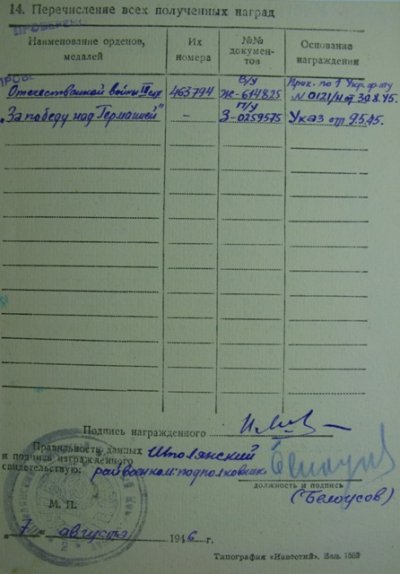 14. Перечисление всех полученных наград
ПРОВЕРЕНО
Наименование орденов, медалей
Их номера
№№ документов
Основание награждения
Отечественной войны II ст.
463794
В/У Ж-614825
Прик. по 1 Укр. фр-ту N 0121/н от 30.8.45.
„За победу над Германией"
–
П/У З-0259575
Указ от 9.5.45.
Подпись награжденного
Правильность данных
и подписи награжденного
свидетельствую:
Шполянский
райвоенком: подполковник
должность и подпись
(Белоусов)
М. П.
7 августа 1946 г.
Типография «Известий». Зак. 1582